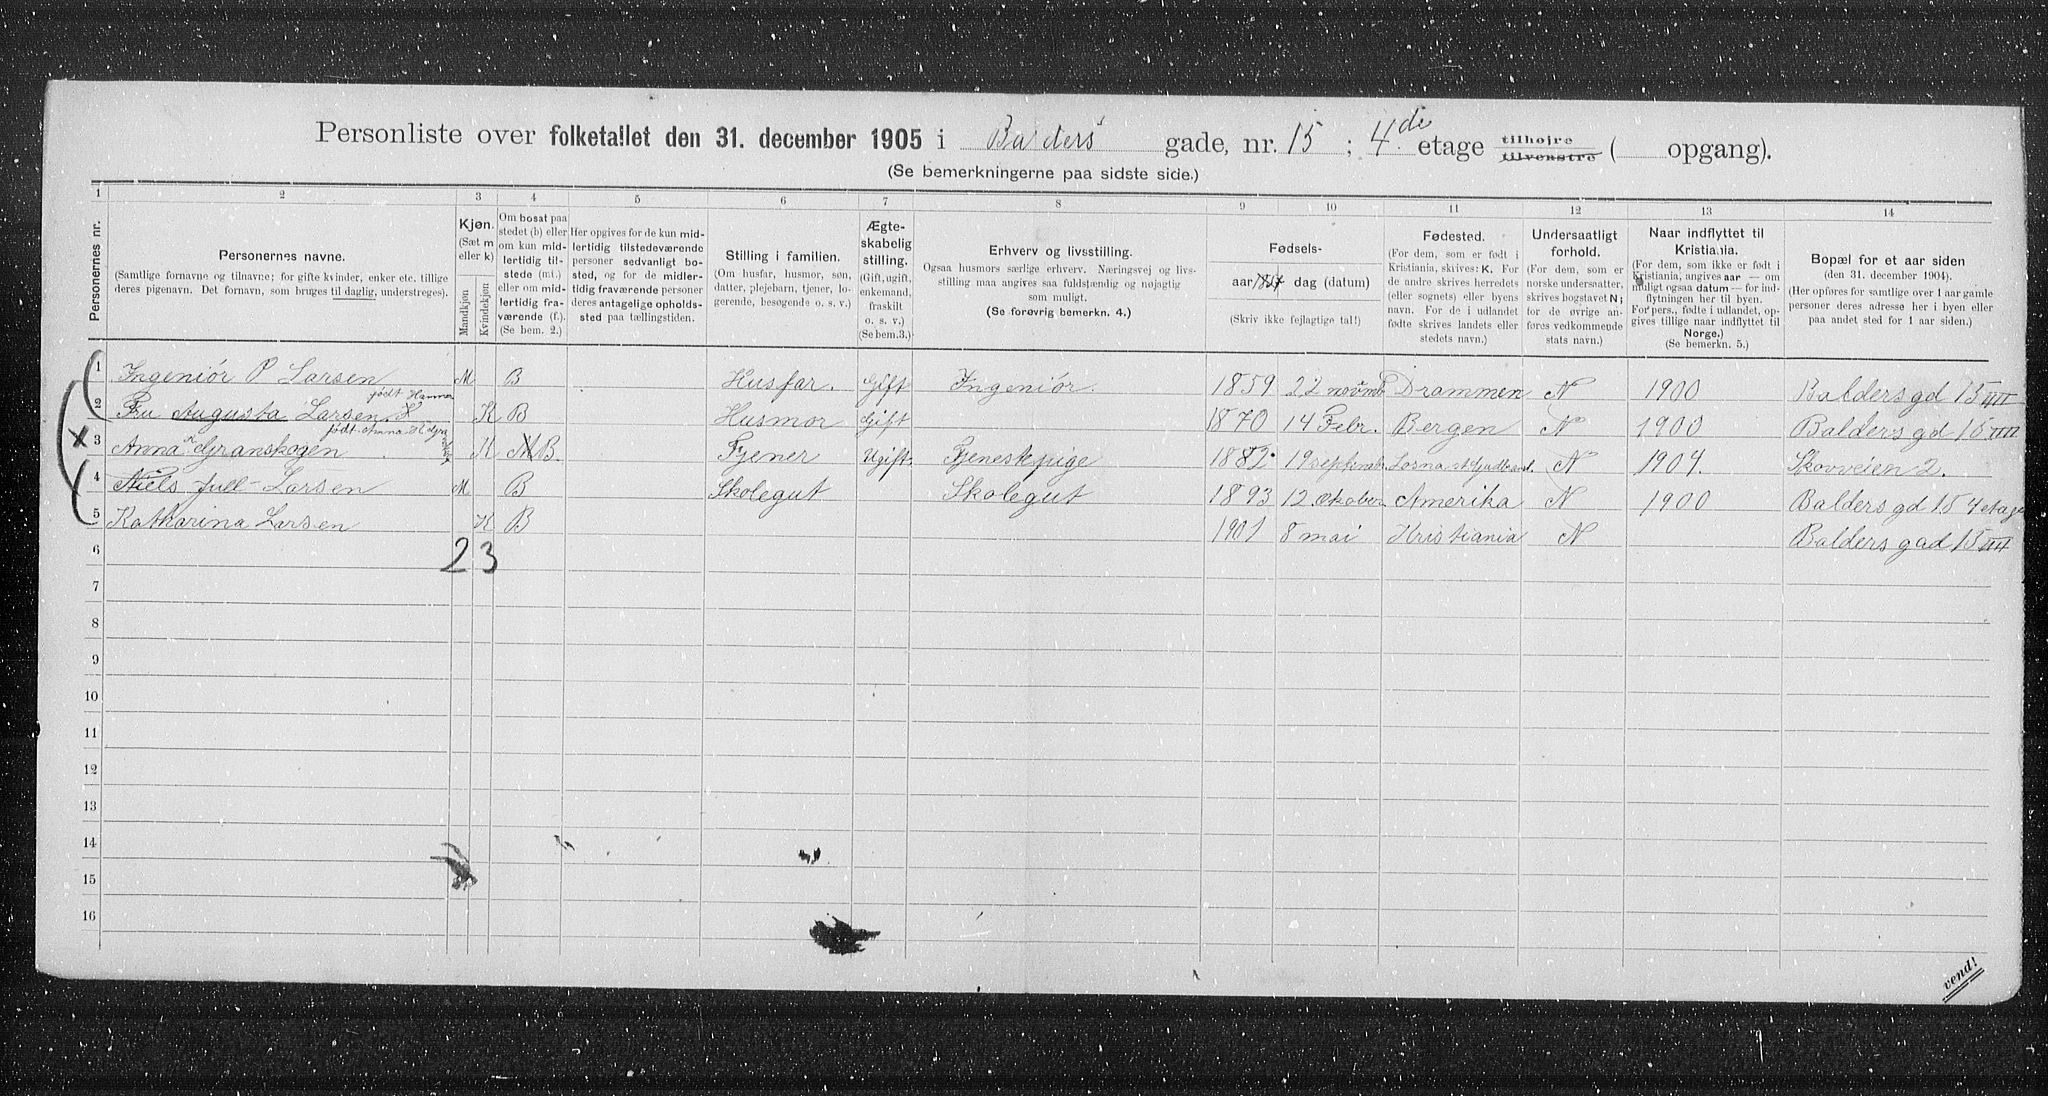 Personliste over folketallet den 31. december 1905 i Balders gade, nr. 15; 4de etage tilhøjre tilvenstre ( opgang).
(Se bemerkningerne paa sidste side.)
1 2 3 4 5 6 7 8 9 10 11 12 13 14
Personernes nr.
Personernes navne.
(Samtlige fornavne og tilnavne; for gifte kvinder, enker etc. tillige
deres pigenavn. Det fornavn, som bruges til daglig, understreges).
Kjøn.
(Sæt m
eller k)
Mandkjøn
Kvindekjøn
Om bosat paa
stedet (b) eller
om kun mid-
lertidig til-
stede (mt.)
eller om mid-
lertidig fra-
værende (f.).
(Se bem. 2.)
Her opgives for de kun mid-
lertidig tilstedeværende
personer sedvanlig bo-
sted, og for de midler-
tidig fraværende personer
deres antagelige opholds-
sted paa tællingstiden.
Stilling i familien.
(Om husfar, husmor, søn,
datter, plejebarn, tjener, lo-
gerende, besøgende o. s. v.)
Ægte-
skabelig
stilling.
(Gift, ugift,
enkemand,
fraskilt
o. s. v.)
(Se bem. 3.)
Erhverv og livsstilling.
Ogsaa husmors særlige erhverv. Næringsvej og livs-
stilling maa angives saa fuldstændig og nøjagtig
som muligt.
(Se forøvrig bemerkn. 4.)
Fødsels-
aar dag (datum)
(Skriv ikke fejlagtige tal!)
Fødested.
(For dem, som er født i
Kristiania, skrives: K. For
de andre skrives herredets
(eller sognets) eller byens
navn. For de i udlandet
fødte skrives landets eller
stedets navn.)
Undersaatligt
forhold.
(For dem, som er
norske undersaatter,
skrives bogstavet N;
for de øvrige an-
føres vedkommende
stats navn.)
Naar indflyttet til
Kristiania.
(For dem, som ikke er født i
Kristiania, angives aar — om
muligt ogsaa datum — for ind-
flytningen her til byen.
For pers., fødte i udlandet, op-
gives tillige naar indflyttet til
Norge.)
(Se bemerkn. 5.)
Bopæl for et aar siden
(den 31. december 1904).
(Her opføres for samtlige over 1 aar gamle
personer deres adresse her i byen eller
paa andet sted for 1 aar siden.)
1 Ingeniør P Larsen M B Husfar. Gift Ingeniør. 1859 22 novmb Drammen N 1900 Balders gd 15 IIII
født Hammer
2 Fru Augusta Larsen K B Husmor Gift 1870 14 Febr. Bergen N 1900 Balders gd 15 IIII
født Anna
3 Anna Granskogen K B. Tjener Ugift Tjenestepige 1882 19 september Losna N 1904. Skovveien 2.
4 Niels Jull-Larsen M B Skolegut Skolegut 1893 12 Oktober Amerika N 1900 Balders gd 15 4 etage
5 Katharina Larsen K B 1901 8 mai Kristiania N Balders gad 15 IIII
6 2 3
7
8
9
10
11
12
13
14
15
16
vend!